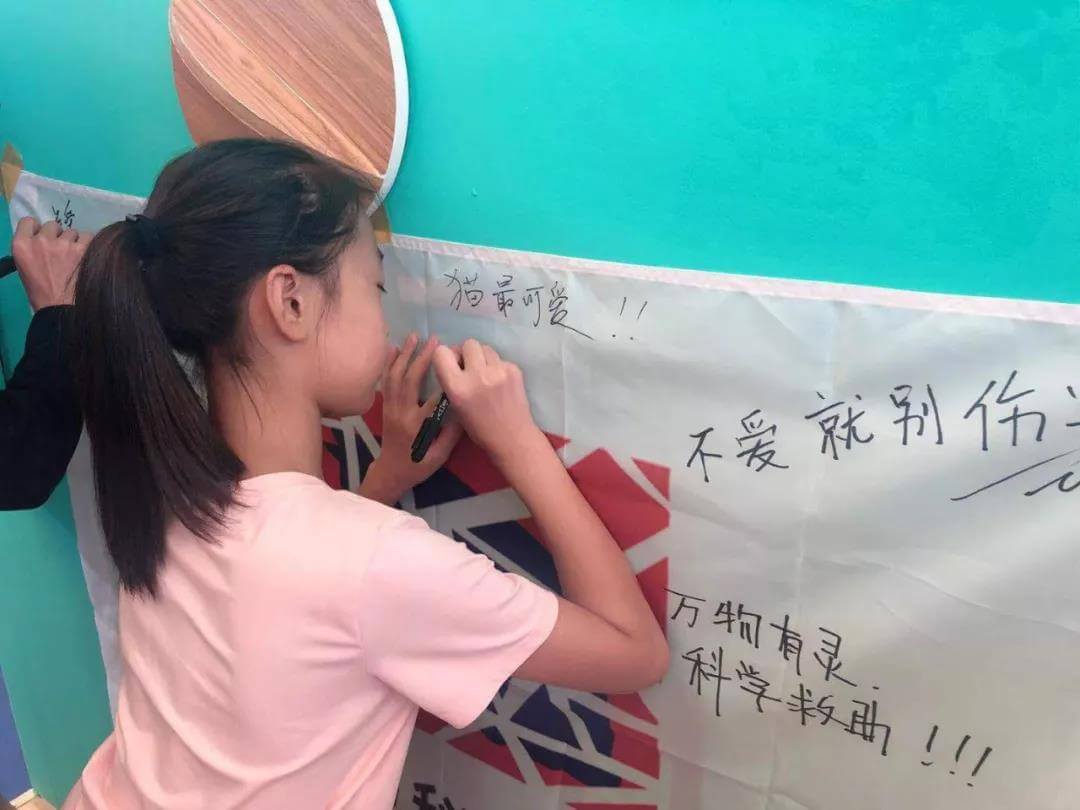 猫最可爱!!
不爱就别伤
万物有灵.
科学救助!!!